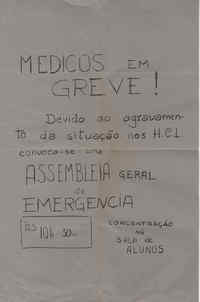 MEDICOS EM
GREVE!
Devido ao agravamen-
to da situação nos H.C.L
convoca-se uma
ASSEMBLEIA GERAL
de
EMERGENCIA
ÀS 10h
CONCENTRAÇÃO
NA
SALA de
ALUNOS